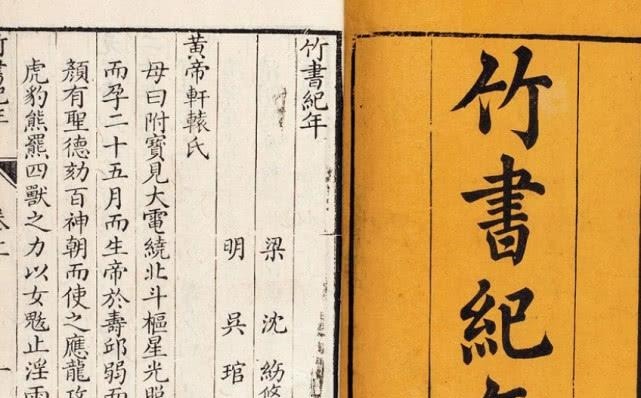 竹書紀年
竹書紀年
梁 沈 約
明 吳 琯
黃帝軒轅氏
母曰附寶見大電繞北斗樞星光照
而孕二十五月而生帝於壽邱弱而
顏有聖德劾百神朝而使之應龍攻
虎豹熊羆四獸之力以女魃止淫雨
竹書紀年 卷上 一